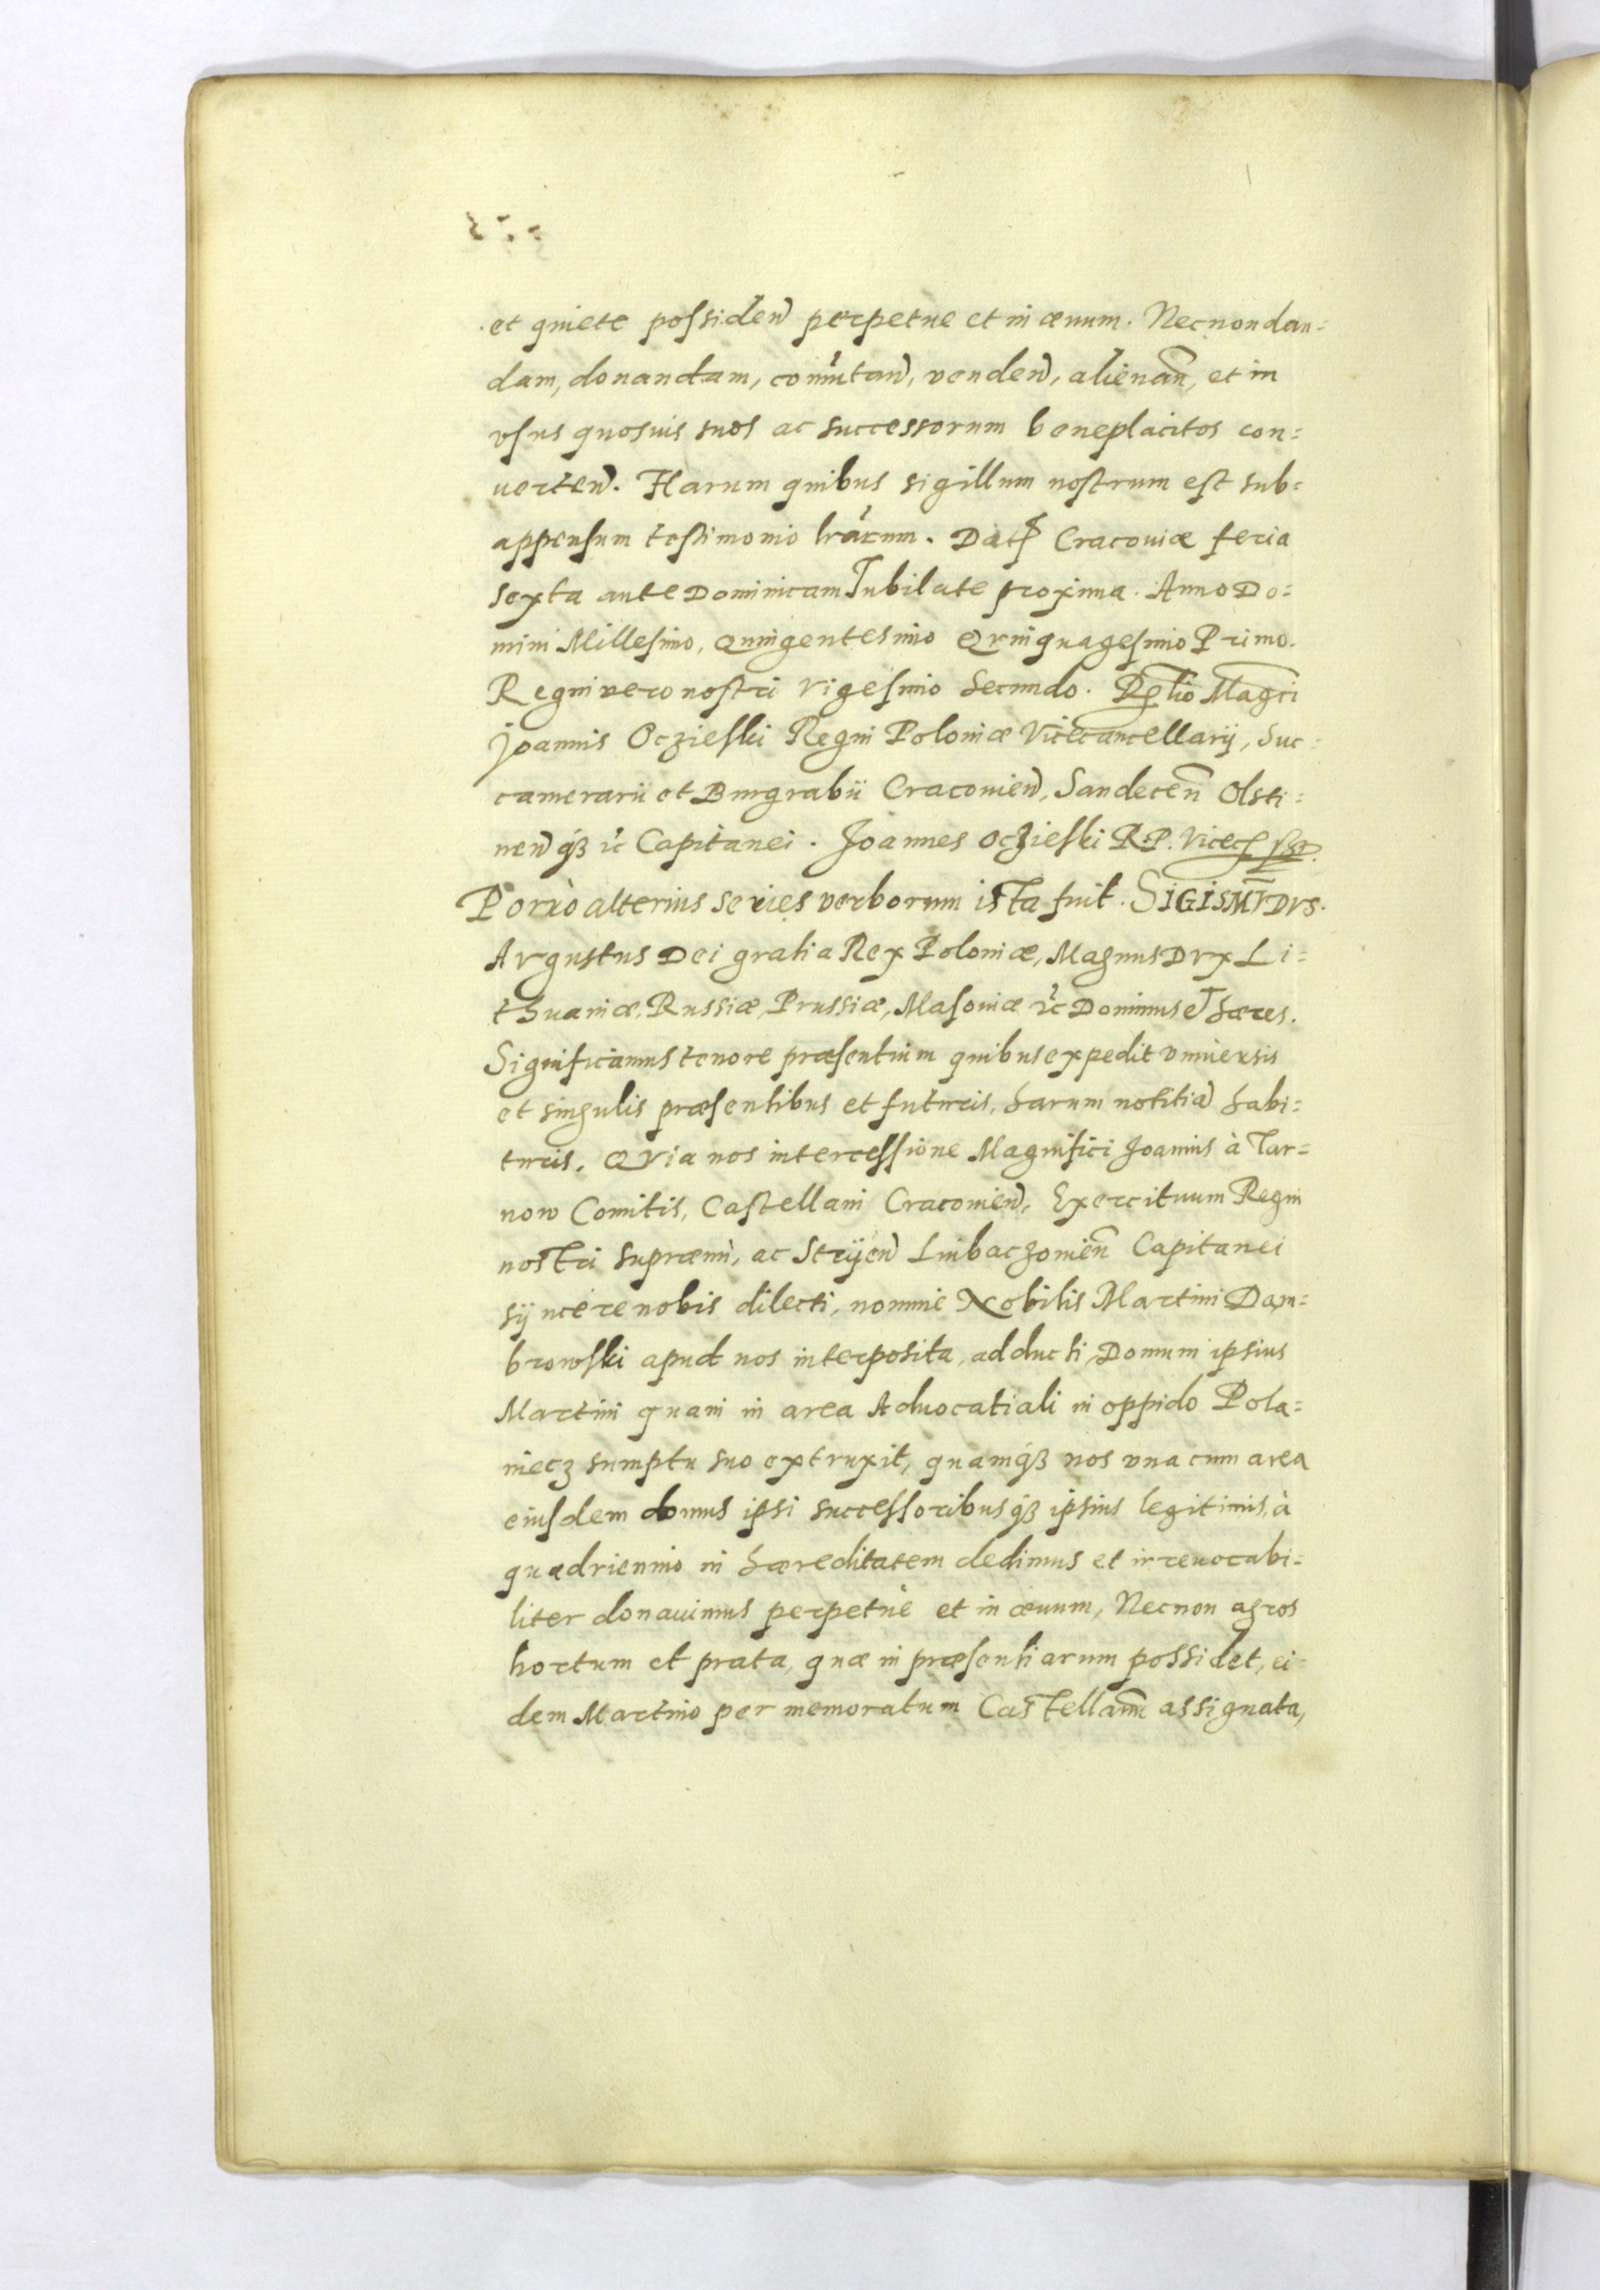 et quiete possiden̄ perpetue et in æuum. Necnon dan=
dam, donandam, com̄utan̄, venden̄, alienan̄, et in
vsus quosuis suos ac successorum beneplacitos con=
uerten̄. Harum quibus sigillum nostrum est sub=
appensum testimonio lr̄arum. Dat̄ Cracouiæ feria
sexta ante Dominicam Iubilate proxima. Anno Do=
mini Millesimo, Quingentesimo Qvinquagesimo Primo.
Regni vero nostri vigesimo Secundo. Rel̄io Maḡci
Joannis Oczieski Regni Poloniæ Vicecancellarij, Suc=
camerarii et Burgrabii Cracouien̄, Sandecen̄ Olsti=
nen̄ qȝ ꝛc Capitanei. Joannes Oczieski R.P. Vicecː sst.
Porrò alterius series verborum ista fuit. SIGISMV̄DVS.
Avgustus Dei gratia Rex Poloniæ, Magnus Dvx Li=
thuaniæ, Russiæ, Prussiæ, Masouiæ ꝛc Dominus et hæres.
Significamus tenore præsentium quibus expedit vniuersis
et singulis præsentibus et futuris, harum notitiā habi=
turis. Qvia nos intercessione Magnifici Joannis à Tar=
now Comitis, Castellani Cracouien̄, Exercituum Regni
nostri supræmi, ac Stryen̄ Lubaczouien̄ Capitanei
syncere nobis dilecti, nomine Nobilis Martini Dam=
browski apud nos interposita, adducti, Domum ipsius
Martini quam in area Aduocatiali in oppido Pola=
niecz sumptu suo extruxit, quamqȝ nos vna cum area
eiusdem domus ipsi successoribusqȝ ipsius legitimis, à
quadriennio in hæreditatem dedimus et irreuocabi=
liter donauimus perpetuè et in æuum, Necnon agros
hortum et prata, quæ in præsentiarum possidet, ei=
dem Martino per memoratum Castellanū assignata,